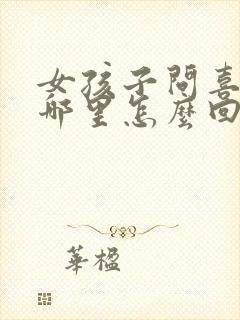 女孩子問喜
哪里怎麼回
華楹